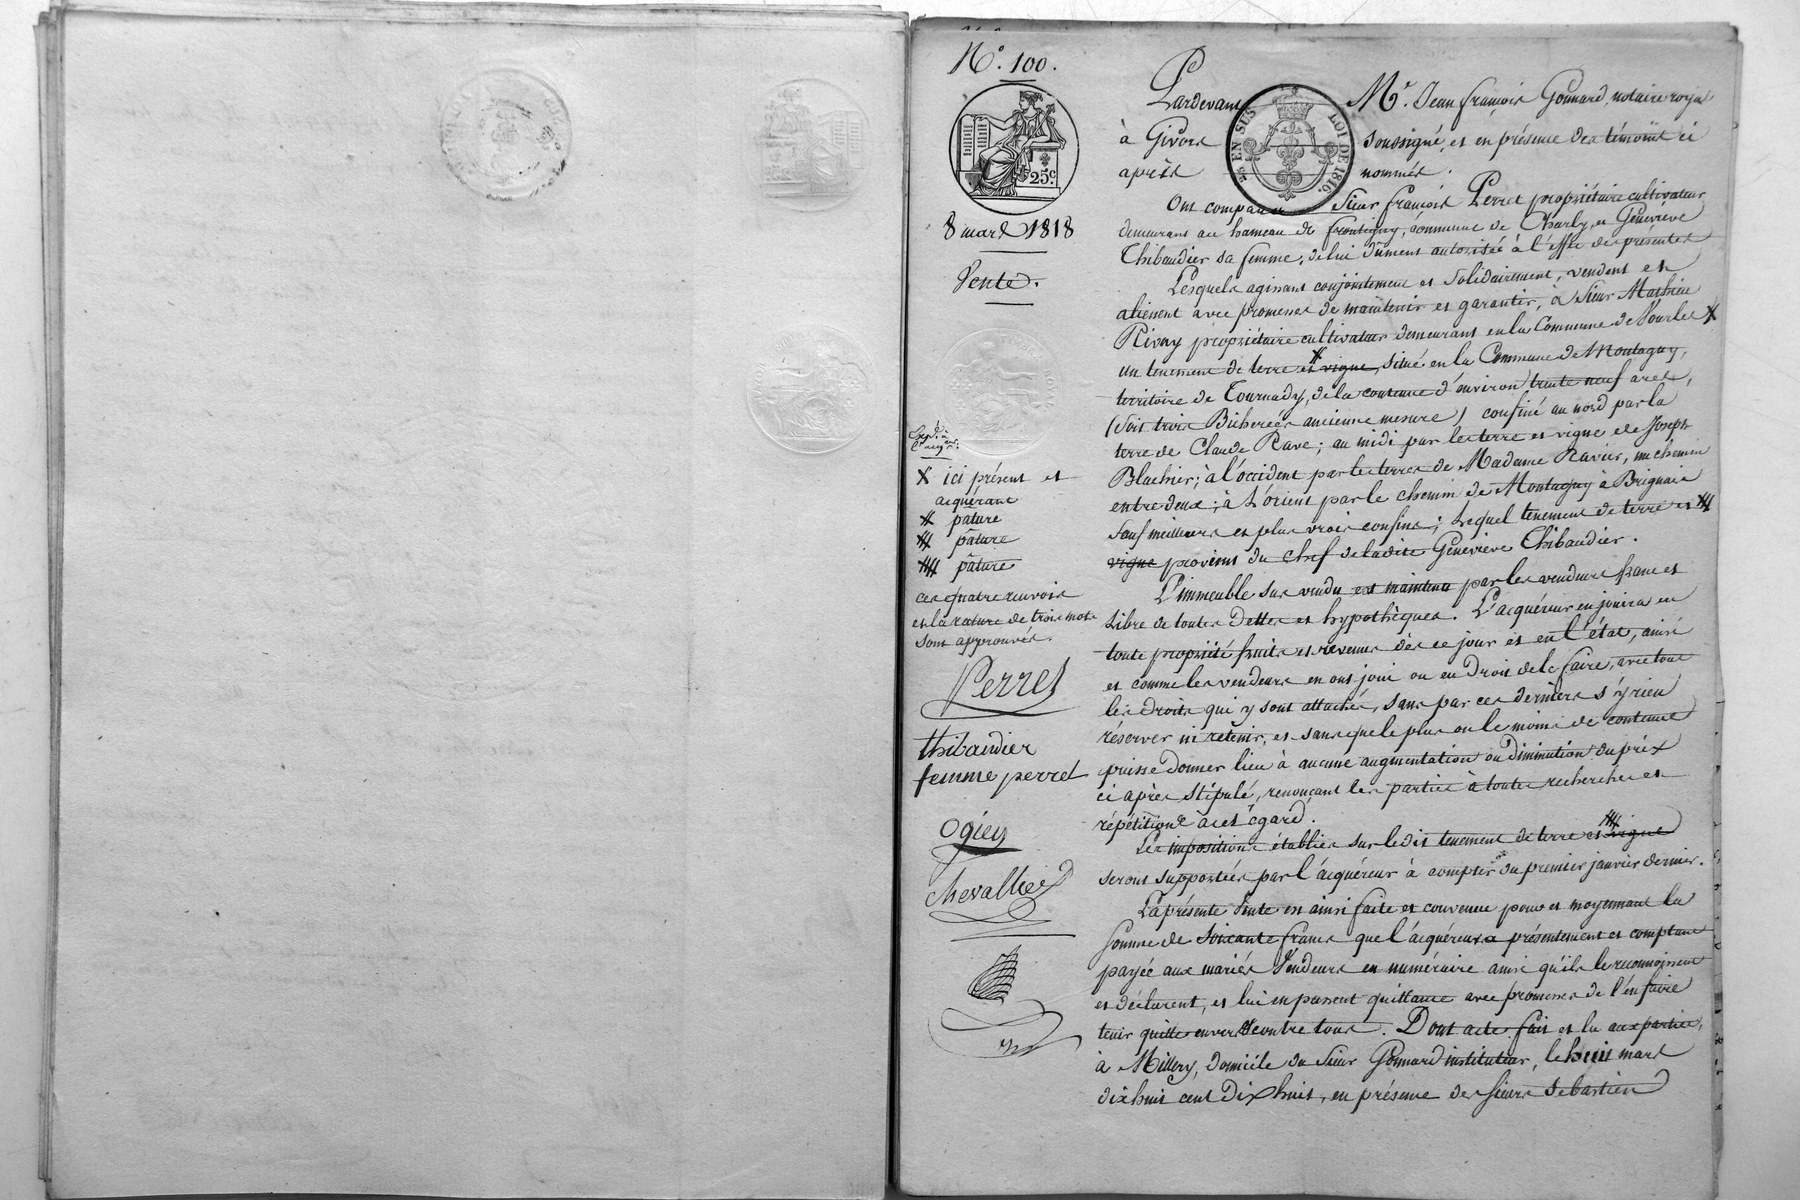 N.° 100.
25c.
8 mars 1818
Vente.
Expd. à
l'acqr.
X ici présent et
acquérant
# pâture
# pâture
# pâture
ces quatre renvois
et la rature de trois mots
sont approuvés.
Perret
thibaudier
femme perret
Ogier
chevallier
Pardevant Me. Jean françois Gonnard, notaire royal
à Givors soussigné, et en présence des témoins ci
après nommés.
EN SUS LOI DE 1816.
Ont comparu Sieur françois Perret propriétaire cultivateur
demeurant au hameau de frontigny, commune de Charly, et Geneviève
Thibaudier sa femme, de lui dûment autorisée à l'effet des présentes
Lesquels agissant conjointement et Solidairement, vendent et
aliènent avec promesse de maintenir et garantir, à Sieur Mathieu
Rivay propriétaire cultivateur demeurant en la Commune de Vourles X
un tenement de terre et # vigne, situé en la Commune de Montagny,
territoire de Tournady, de la contenue d'environ trente neuf ares,
(Soit trois Bicherées ancienne mesure) confiné au nord par la
terre de Claude Rave; au midi par les terre et vigne de Joseph
Blachier; à l'occident par les terres de Madame Ravier, un chemin
entre deux; à L'orient par le chemin de Montagny à Brignais
Sauf meilleurs et plus vrais confins; Lequel tenement de terre et #
vigne provient du chef de ladite Geneviève Thibaudier.
L'immeuble sus vendu est maintenu par les vendeurs franc et
Libre de toutes Dettes et hypothèques. L'acquéreur en jouira en
toute propriété fruits et revenus dès ce jour et en l'état, ainsi
et comme les vendeurs en ont joui ou eu Droit de le faire, avec tous
les droits qui y sont attachés, sans par ces derniers s'y rien
réserver ni retenir, et sans que le plus ou le moins de contenue
puisse Donner lieu à aucune augmentation ou Diminution du prix
ci après Stipulé, renonçant les parties à toutes recherches et
répétitions à cet égard.
Les impositions établies sur ledit tenement de terre et # vigne
seront supportées par l'acquéreur à compter du premier janvier dernier.
La présente Vente est ainsi faite et convenue pour et moyennant la
Somme de Soixante francs que l'acquéreur a présentement et comptant
payée aux mariés Vendeurs en numéraire ainsi qu'ils le reconnoissent
et déclarent, et lui en passent quittance avec promesse de l'en faire
tenir quitte envers et contre tous. Dont acte fait et lu aux parties,
à Millery, domicile du Sieur Gonnard instituteur, le huit mars
dix huit cent Dix huit, en présence des Sieurs Sebastien